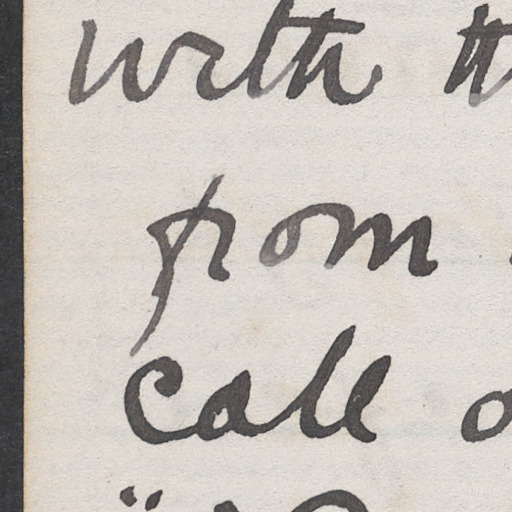 with
from
call